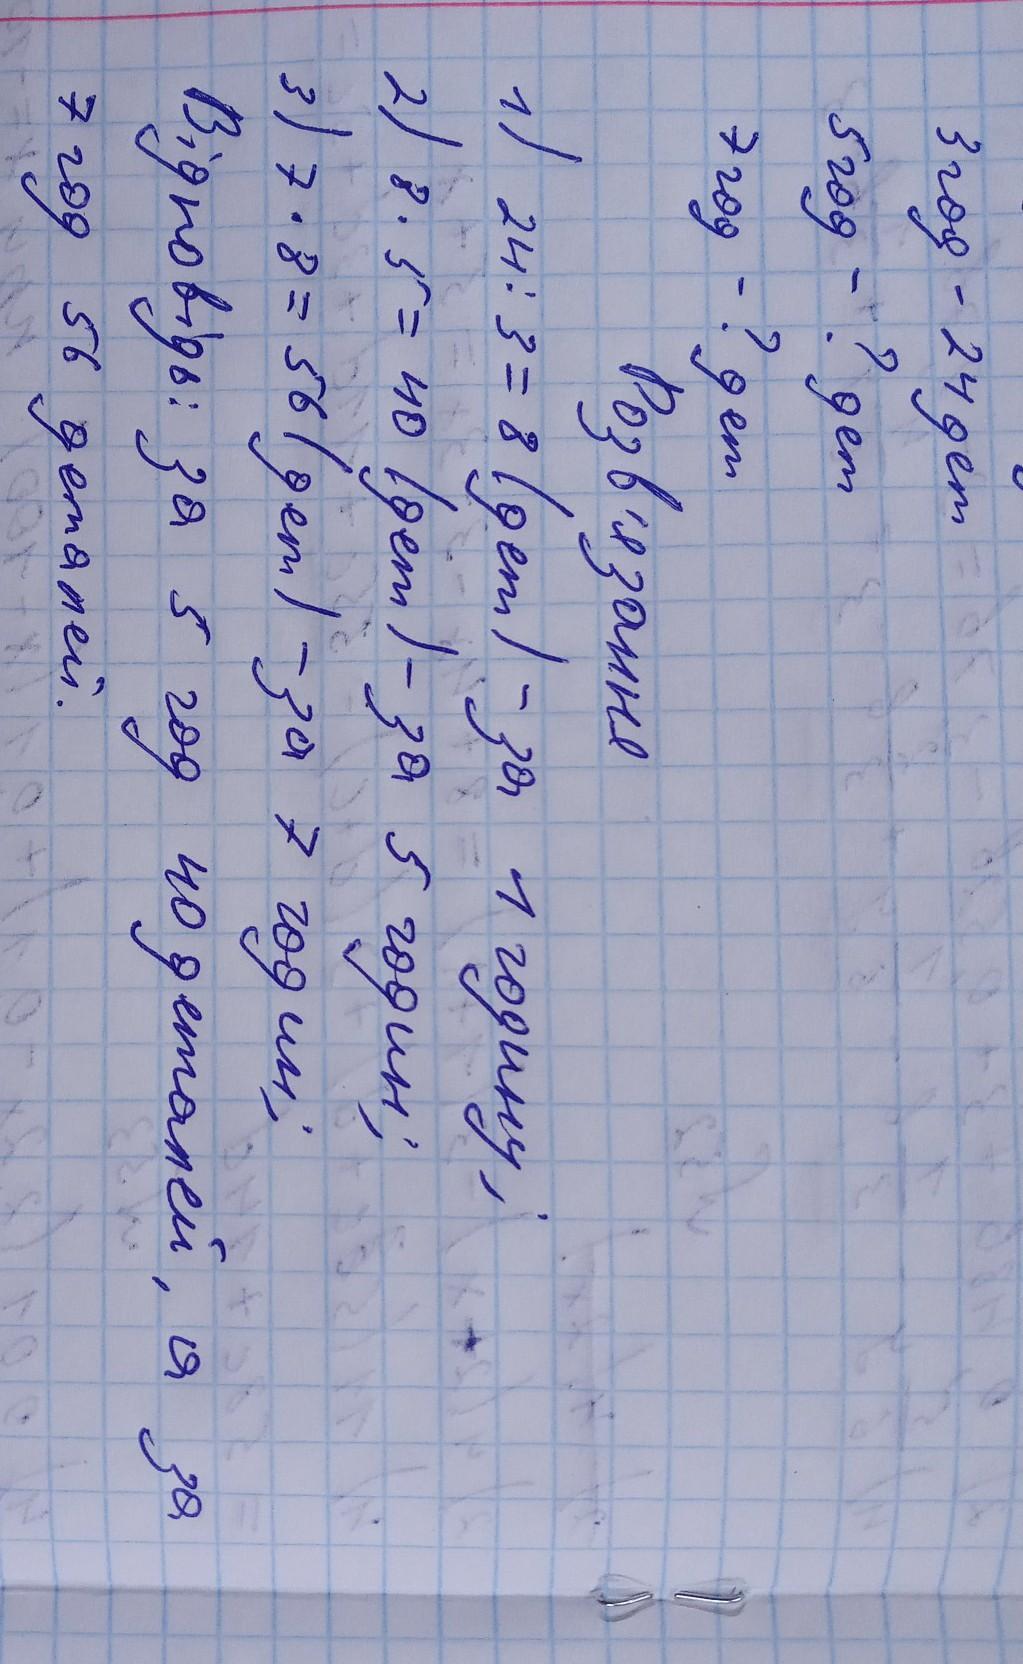 3 год - 24 дет
5 год - ? дет
7 год - ? дет
Розв'язання
1) 24 : 3 = 8 (дет) - за 1 годину;
2) 8 · 5 = 40 (дет) - за 5 годин;
3) 7 · 8 = 56 (дет) - за 7 годин;
Відповідь: за 5 год 40 деталей, а за
7 год 56 деталей.